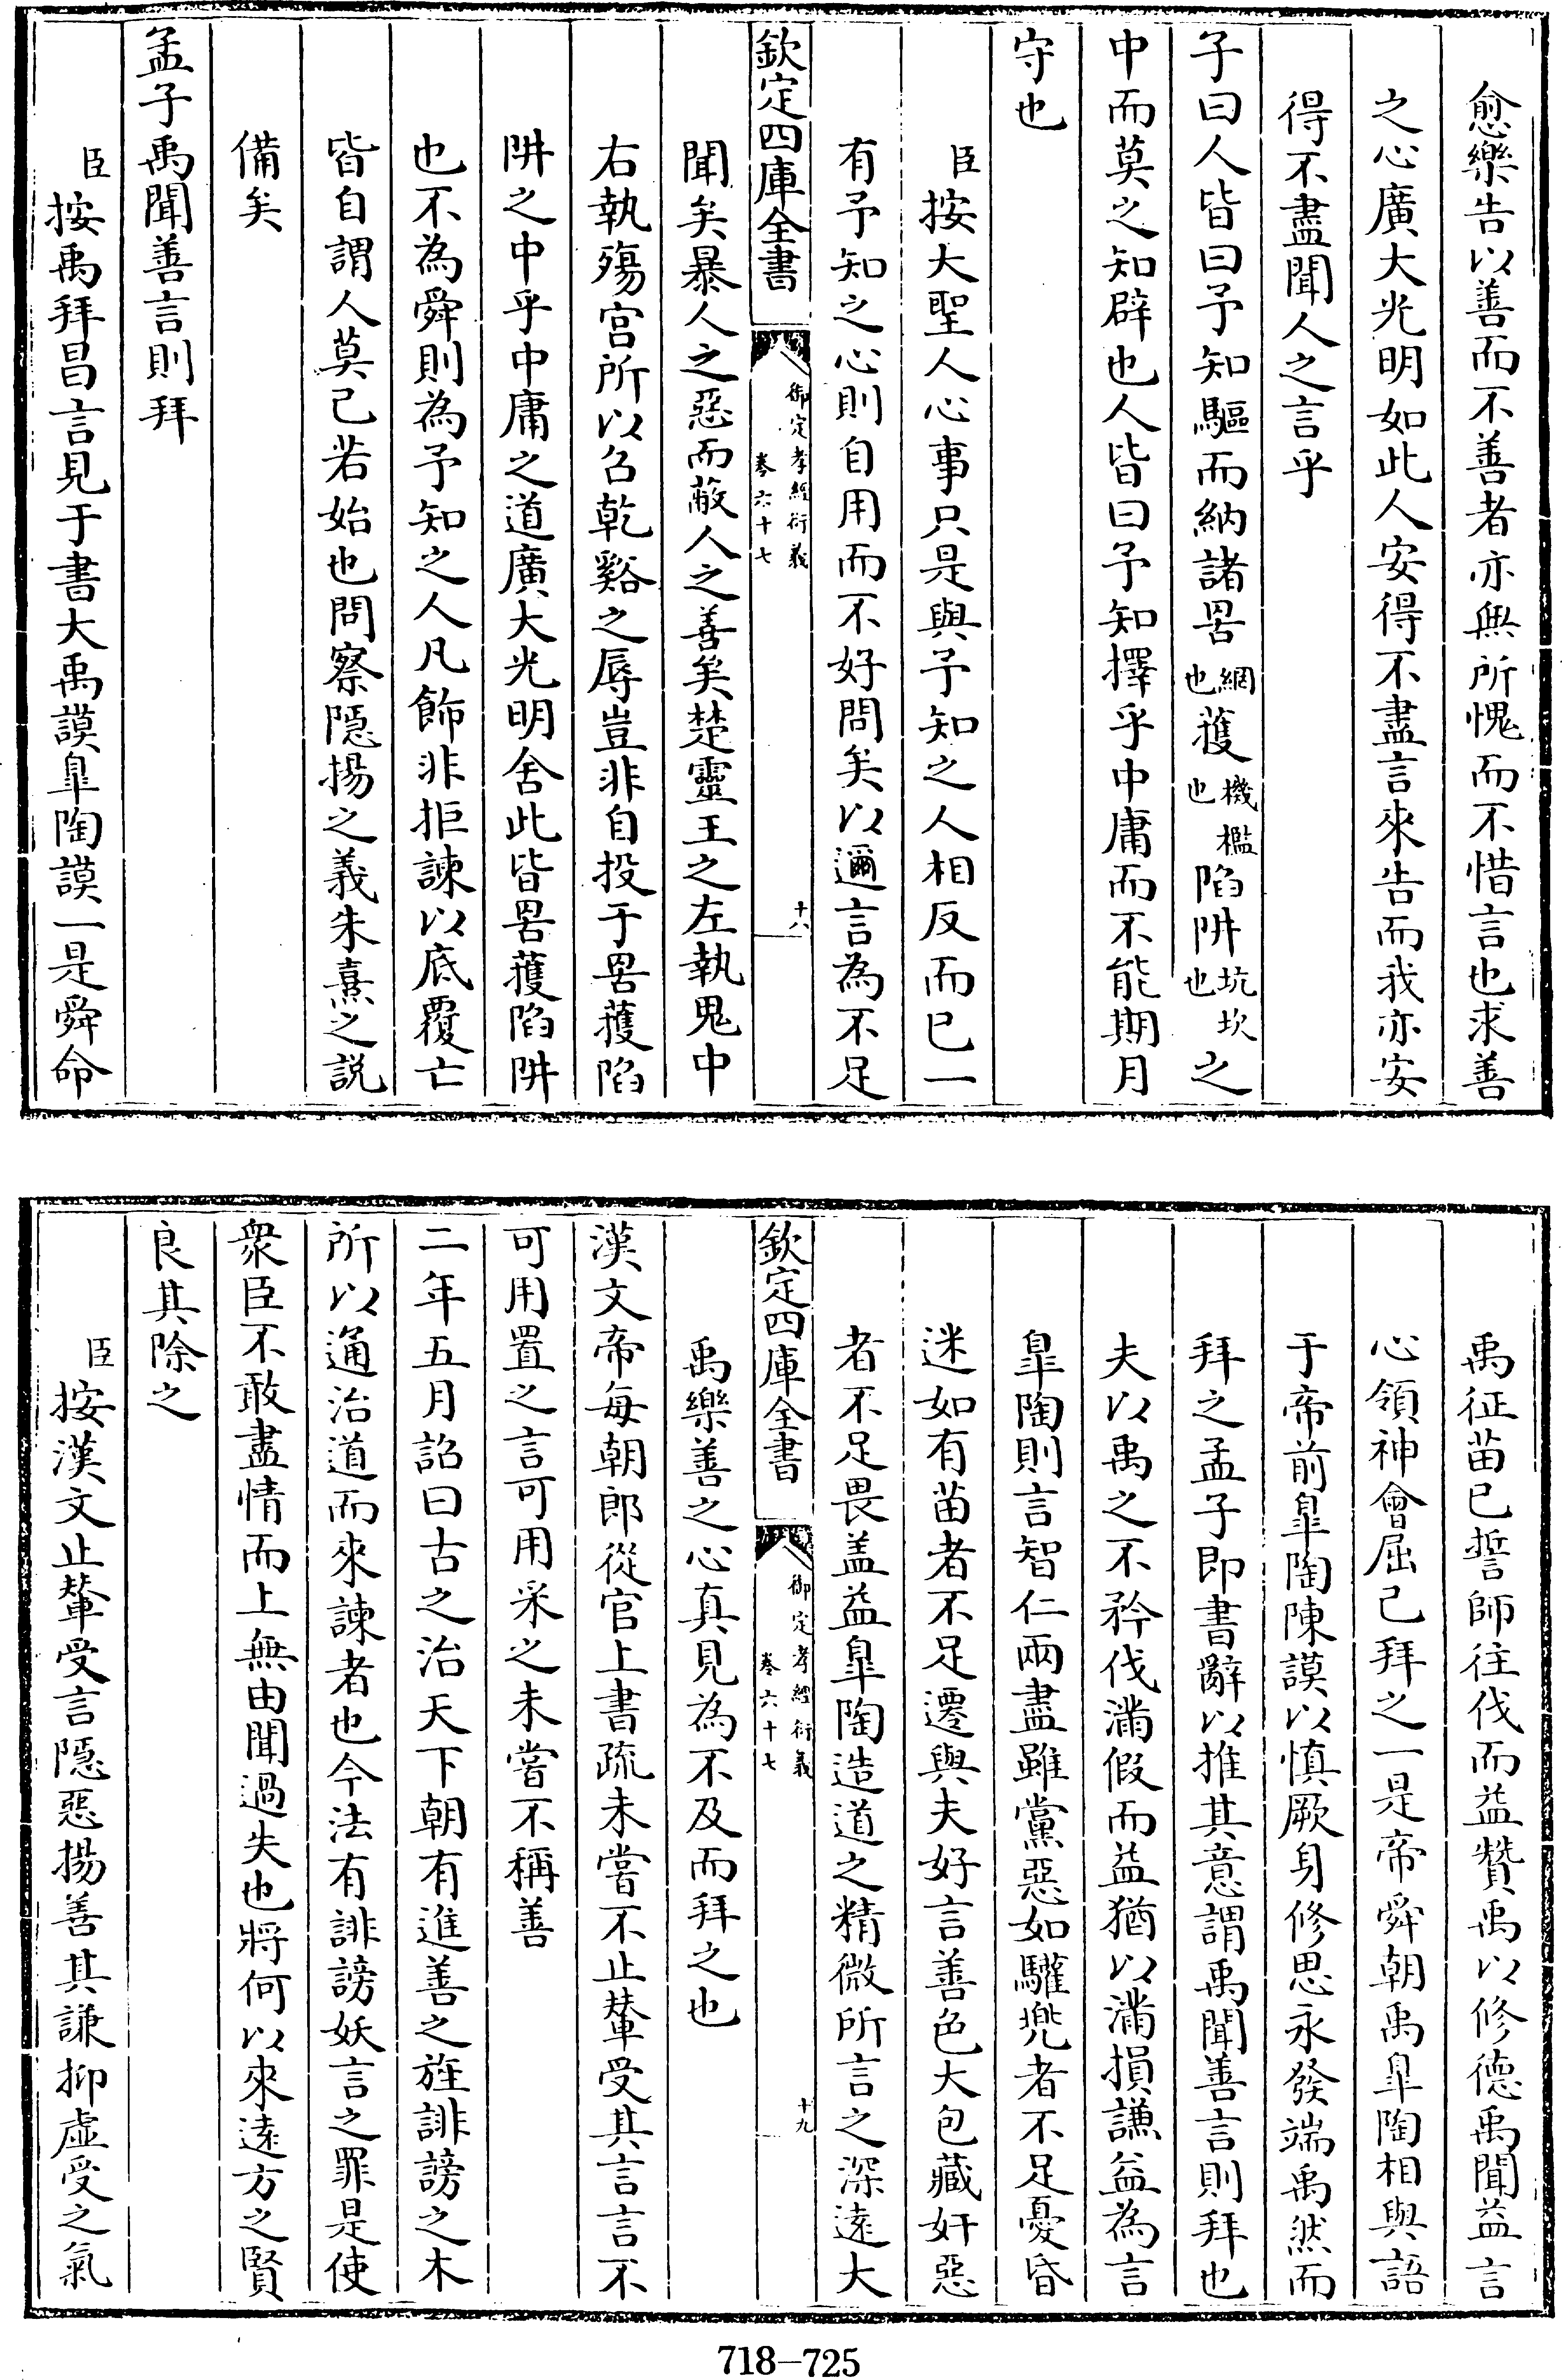 愈樂告以善而不善者亦無所愧而不惜言也求善
之心廣大光明如此人安得不盡言來告而我亦安
得不盡聞人之言乎
子曰人皆曰予知驅而納諸罟網也擭機檻也陷阱坑坎也之
中而莫之知辟也人皆曰予知擇乎中庸而不能期月
守也
臣按大聖人心事只是與予知之人相反而已一
有予知之心則自用而不好問矣以邇言為不足
欽定四庫全書 御定孝經衍義 卷六十七 十八
聞矣暴人之惡而蔽人之善矣楚靈王之左執鬼中
右執殤宮所以召乾谿之辱豈非自投于罟擭陷
阱之中乎中庸之道廣大光明舍此皆罟擭陷阱
也不為舜則為予知之人凡飾非拒諫以底覆亡
皆自謂人莫己若始也問察隱揚之義朱熹之説
備矣
孟子禹聞善言則拜
臣按禹拜昌言見于書大禹謨臯陶謨一是舜命
禹征苗已誓師往伐而益贊禹以修德禹聞益言
心領神會屈己拜之一是帝舜朝禹臯陶相與語
于帝前臯陶陳謨以慎厥身修思永發端禹然而
拜之孟子即書辭以推其意謂禹聞善言則拜也
夫以禹之不矜伐滿假而益猶以滿損謙益為言
臯陶則言智仁兩盡雖黨惡如驩兜者不足憂昏
迷如有苗者不足遷與夫好言善色大包藏奸惡
者不足畏盖益臯陶造道之精微所言之深遠大
欽定四庫全書 御定孝經衍義 卷六十七 十九
禹樂善之心真見為不及而拜之也
漢文帝每朝郎從官上書疏未嘗不止輦受其言言不
可用置之言可用采之未嘗不稱善
二年五月詔曰古之治天下朝有進善之旌誹謗之木
所以通治道而來諫者也今法有誹謗妖言之罪是使
衆臣不敢盡情而上無由聞過失也將何以來遠方之賢
良其除之
臣按漢文止輦受言隱惡揚善其謙抑虛受之氣
718-725